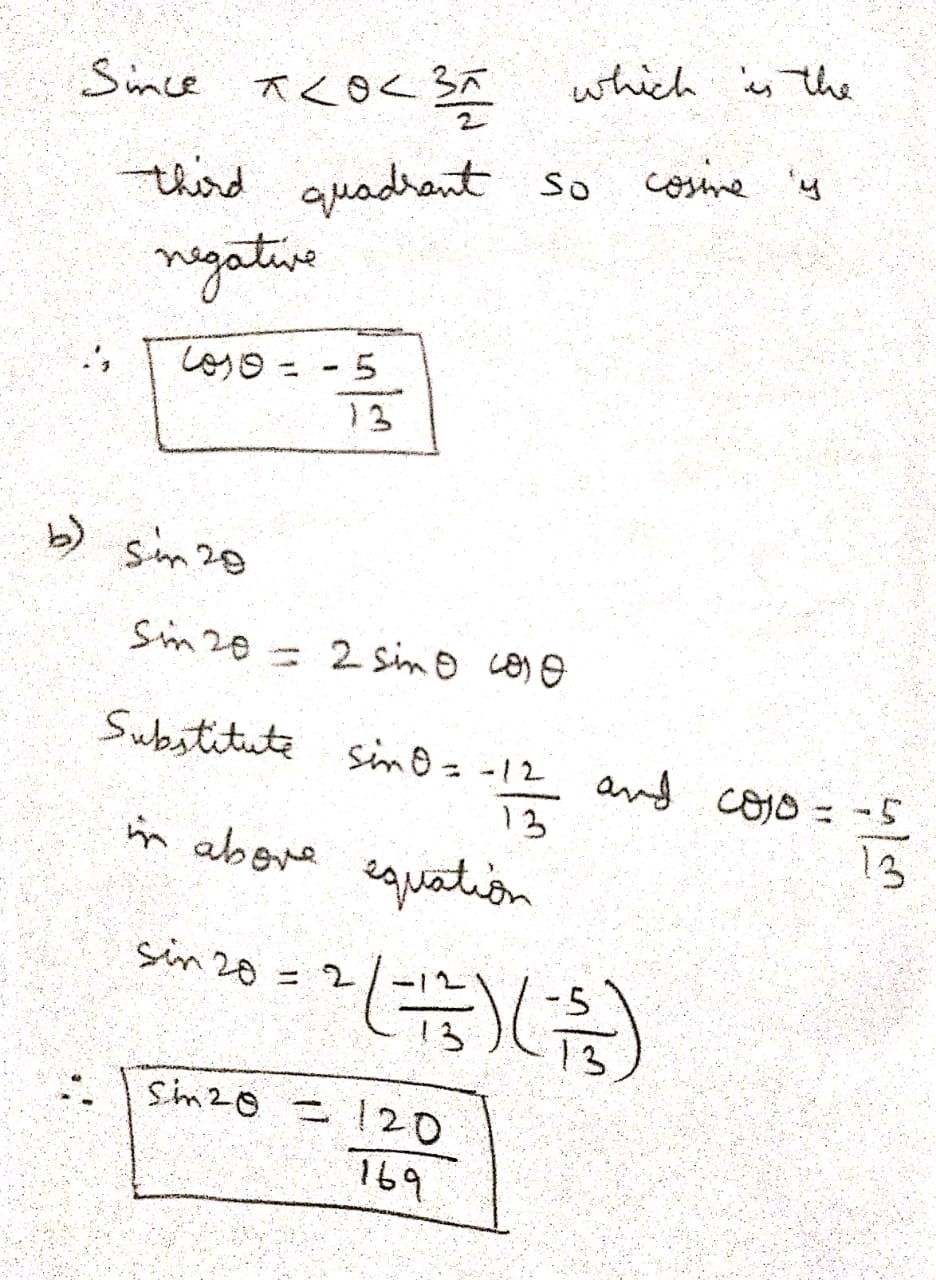 Since π < θ < 3π/2 which is the
third quadrant so cosine is
negative
∴ cosθ = -5/13
b) sin2θ
sin2θ = 2 sinθ cosθ
Substitute sinθ = -12/13 and cosθ = -5/13
in above equation
sin2θ = 2(-12/13)(-5/13)
∴ sin2θ = 120/169